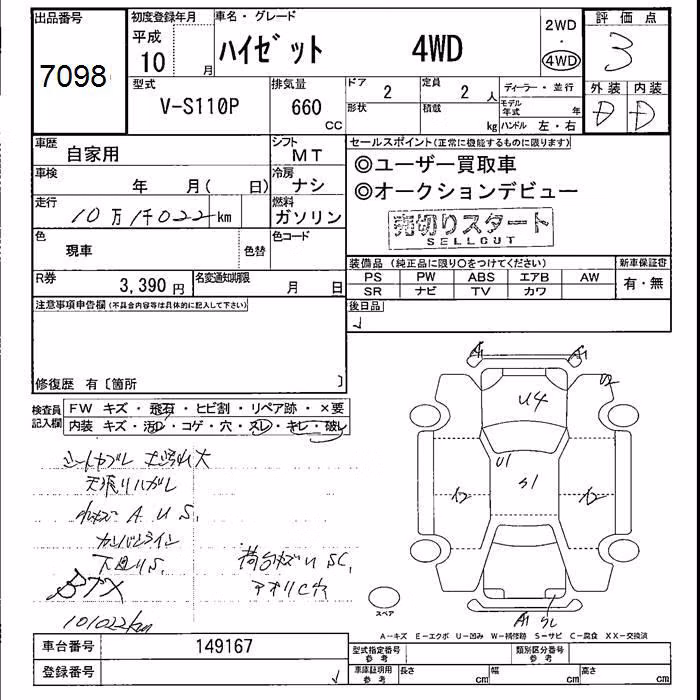 出品番号 初度登録年月 車名・グレード 2WD 評価点
7098 平成 10 月 ハイゼット 4WD ・ 4WD 3
型式 排気量 ドア 定員 ディーラー・並行 外装 内装
V-S110P 660 CC 2 2 人 モデル年式 年 D D
形状 積載 kg ハンドル 左・右
車歴 自家用 シフト MT セールスポイント(正常に機能するものに限ります)
車検 年 月( 日) 冷房 ナシ ◎ユーザー買取車
走行 10万1千022 km 燃料 ガソリン ◎オークションデビュー
売切りスタート
SELLOUT
色 現車 色替 色コード
装備品(純正品に限り〇をつけてください) 新車保証書
R券 3,390 円 名変通知期限 月 日 PS PW ABS エアB AW 有・無
SR ナビ TV カワ
注意事項申告欄(不具合内容等は具体的に記入して下さい) 後日品
修復歴 有〔箇所 〕
検査員記入欄 FW キズ・飛石・ヒビ割・リペア跡・×要
内装 キズ・汚れ・コゲ・穴・スレ・キレ・破レ
A1 A1
U4 U2
U1 S1
天張りハガレ
A U S.
下回りS.
荷台キズU SC.
アオリC穴
101022km
スペア
A1
A−キズ E−エクボ U−凹み W−補修跡 S−サビ C−腐食 XX−交換済
車台番号 149167 型式指定番号 参考 類別区分番号 参考
登録番号 車庫証明用 参考 長さ cm 幅 cm 高さ cm